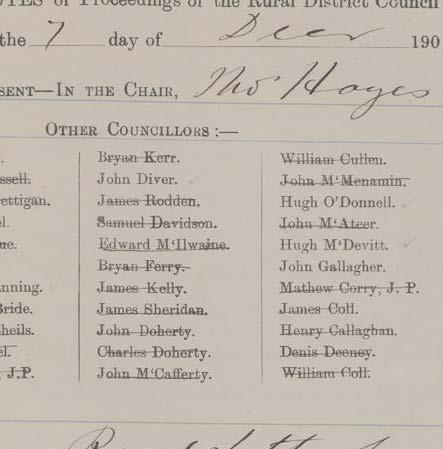 of Proceedings of the Rural District Council
the 7 day of Decr 190
SENT—IN THE CHAIR, Thos Hayes
OTHER COUNCILLORS :—
Bryan Kerr. William Cullen.
ssell. John Diver. John M‘Menamin.
ettigan. James Rodden. Hugh O’Donnell.
el. Samuel Davidson. John M‘Ateer.
ue. Edward M‘Ilwaine. Hugh M‘Devitt.
Bryan Ferry. John Gallagher.
nning. James Kelly. Mathew Corry, J. P.
Bride. James Sheridan. James Coll.
Sheils. John Doherty. Henry Callaghan.
el. Charles Doherty. Denis Deeney.
, J.P. John M‘Cafferty. William Coll.